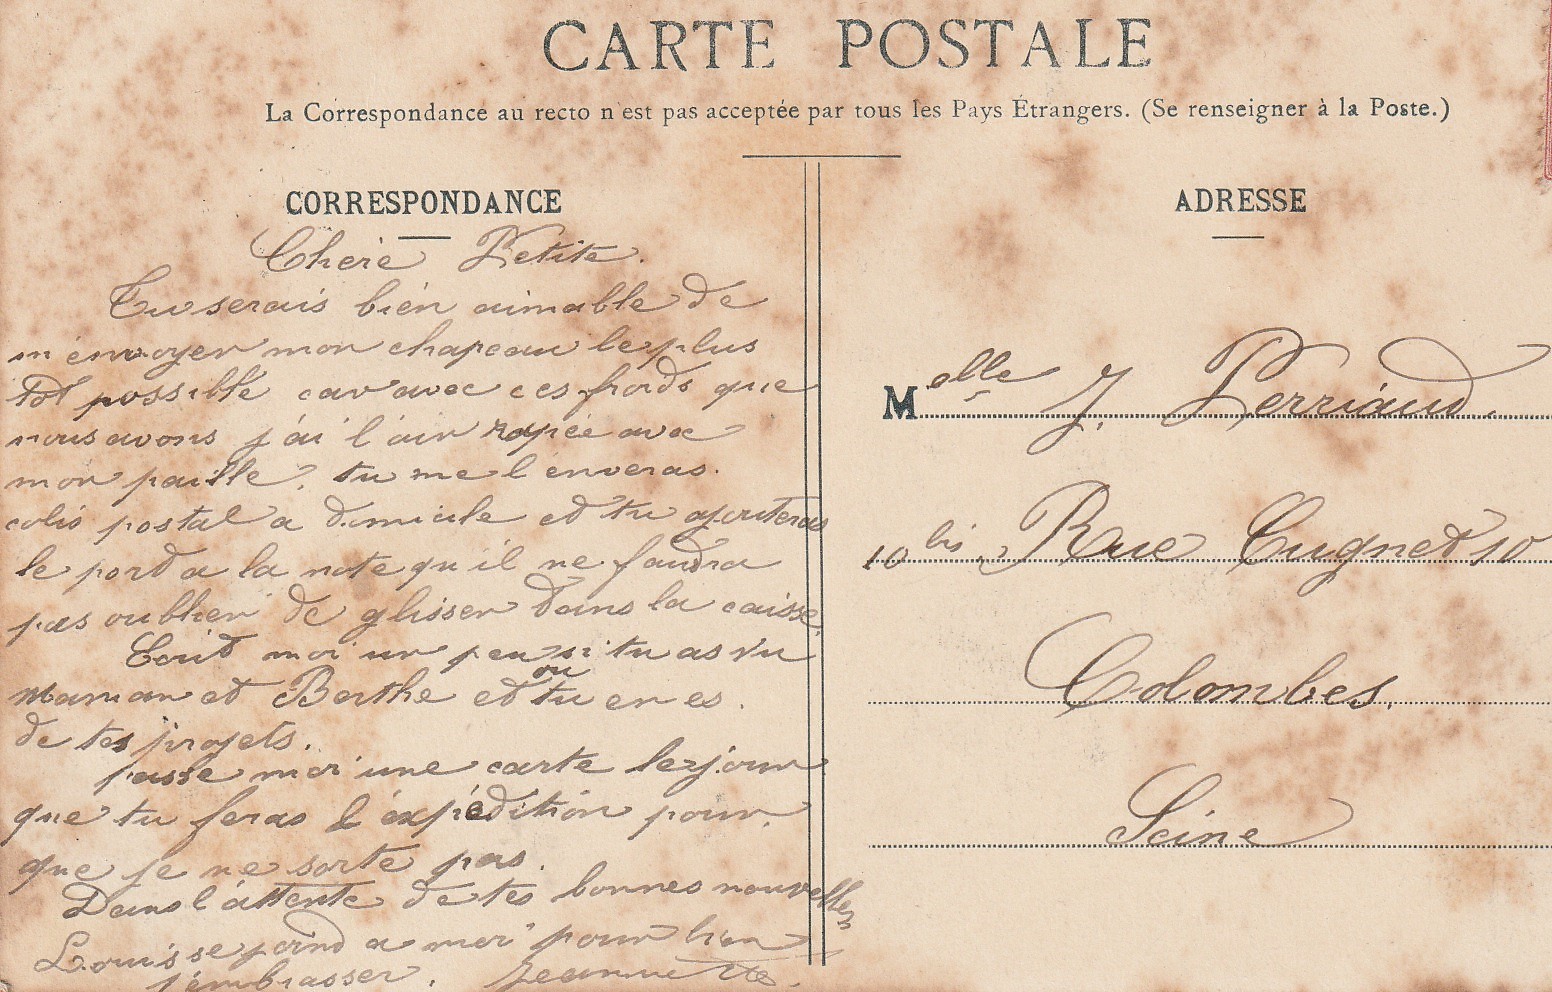 CARTE POSTALE
La Correspondance au recto n'est pas acceptée par tous les Pays Étrangers. (Se renseigner à la Poste.)
CORRESPONDANCE
Chère Petite.
Tu serais bien aimable de
m'envoyer mon chapeau le plus
tot possible car avec ces froids que
nous avons j'ai l'air rapée avec
mon paille, tu me l'enveras.
colis postal a domicile et tu ajouteras
le port a la note qu'il ne faudra
pas oublier de glisser dans la caisse.
Ecrit moi un peu si tu as vu
Maman et Berthe et ou tu en es.
de tes projets.
passe moi une carte le jour
que tu feras l'éxpédition pour.
que je ne sorte pas.
Dans l'attente de tes bonnes nouvelles
Louis se joind a moi pour bien
t'embrasser. Jeannette.
ADRESSE
Melle J. Perriaud.
10 bis Rue Cugnet 10
Colombes.
Seine